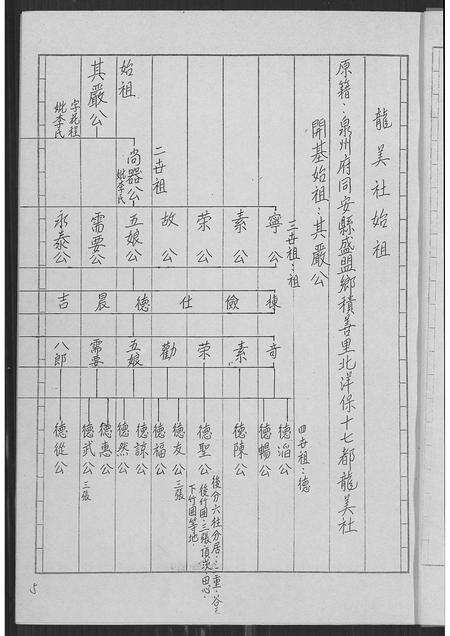 龍美社始祖
原籍：泉州府同安縣盛盟鄉積善里北洋保十七都龍美社
開基始祖：其嚴公
始祖
其嚴公
字苑程
妣李氏
二世祖
尚器公
妣李氏
三世祖：祖
寧公
素公
荣公
故公
五娘公
需要公
永泰公
棟
儉
仕
德
晨
吉
奇
素
荣
勸
五娘
需要
八郎
四世祖：德
德滔公
德暢公
德陳公
德聖公
後分六柱分居：三重：谷
後竹圍：三張頂茨：田心：
下竹圍等地：
德友公
三張
德福公
德諒公
德然公
德惠公
德武公
三張
德從公
5